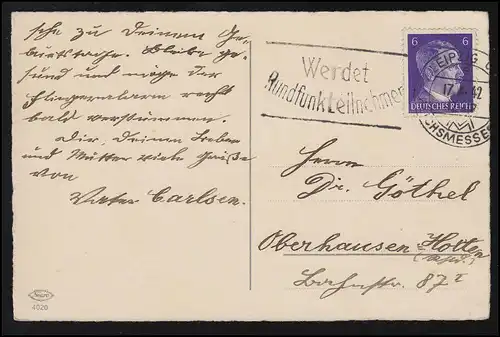 sche zu Deinem Ge-
burtstage. Bleibe ge-
sund und möge der
Fliegeralarm recht
bald verstummen.
Dir, Deinen Lieben
und Mutter viele Grüße
von
Vater Carlsen.
4020
Werdet
Rundfunkteilnehmer
6 6
DEUTSCHES REICH
LEIPZIG
17
42
REICHSMESSESTADT
Herrn
Dr. Göthel
Oberhausen Holten
Bahnstr. 87 I